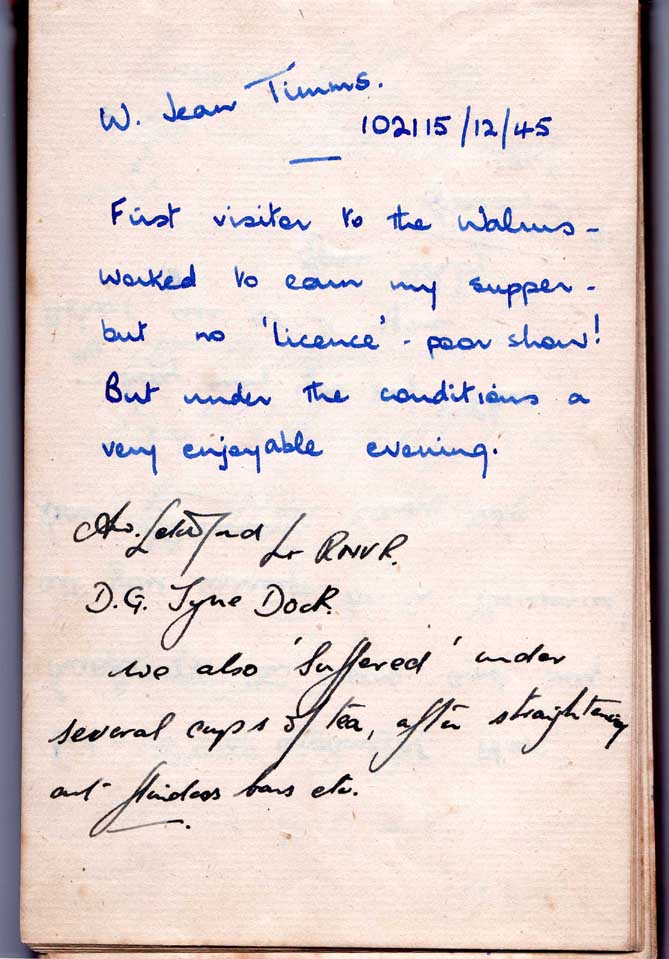 W. Jean Timms.
102115/12/45
First visitor to the Walrus -
worked to earn my supper -
but no 'licence' - poor show!
But under the conditions a
very enjoyable evening.
Lt RNVR.
D.G. Tyne Dock.
we also 'suffered' under
several cups of tea, after straightening
out flinders bars etc.